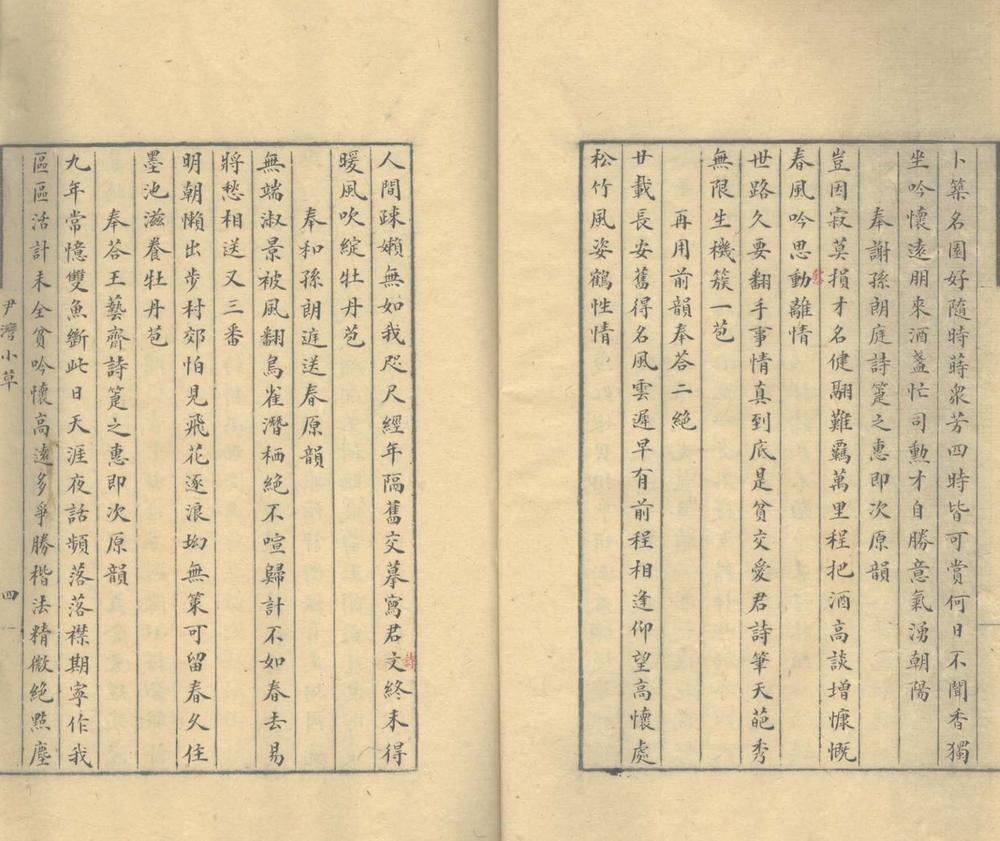 卜築名園好隨時蒔衆芳四時皆可賞何日不聞香獨
坐吟懷遠朋來酒盞忙司勳才自勝意氣湧朝陽
奉謝孫朗庭詩箑之惠即次原韻
豈因寂莫損才名健翮難羈萬里程把酒高談增慷慨
春風吟思動離情
世路久要翻手事情真到底是貧交愛君詩筆天葩秀
無限生機簇一苞
再用前韻奉荅二絶
廿載長安舊得名風雲遲早有前程相逢仰望高懷處
松竹風姿鶴性情
人間疎嬾無如我咫尺經年隔舊交摹寫君文終未得
暖風吹綻牡丹苞
奉和孫朗逰送春原韻
無端淑景被風翻烏雀潛栖絶不喧歸計不如春去易
將愁相送又三番
明朝懶出步村郊怕見飛花逐浪㘭無策可留春久住
墨池滋養牡丹苞
奉荅王藝齋詩箑之惠即次原韻
九年常憶雙魚斷此日天涯夜話頻落落襟期寧作我
區區活計未全貧吟懷高遠多爭勝楷法精微絶㸃塵
尹灣小草
四